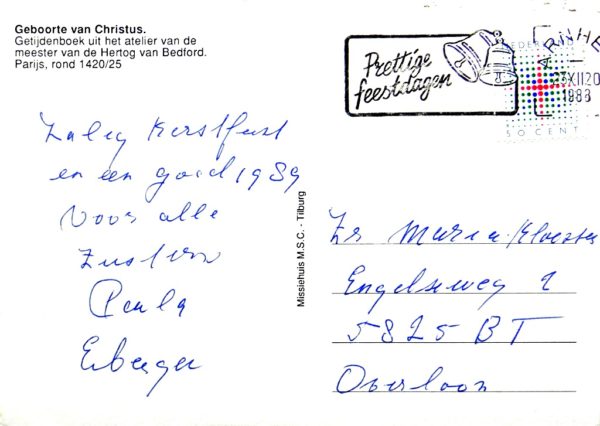 Geboorte van Christus.
Getijdenboek uit het atelier van de
meester van de Hertog van Bedford.
Parijs, rond 1420/25
Prettige
feestdagen
ARNHE
NEDERLAND
XII20
1988
50 CENT
Zalig Kerstfeest
en een goed 1989
Voor alle
Zusters
Paula
Missiehuis M.S.C. - Tilburg
Zr Maria Klooster
Engelseweg 2
5825 BT
Overloon